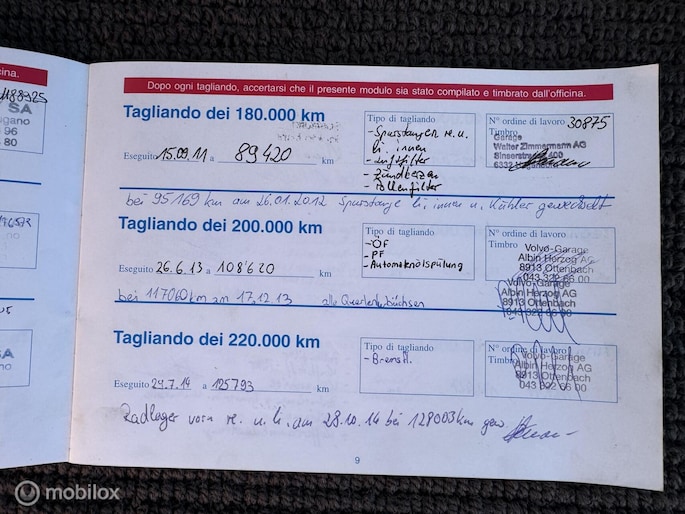 cina.
1188925
SA
ugano
96
80
SA
ano
Dopo ogni tagliando, accertarsi che il presente modulo sia stato compilato e timbrato dall'officina.
Tagliando dei 180.000 km
Eseguito 15.09.11 a 89420 km
Tipo di tagliando
-Spurstangen re. u.
li. innen
-Luftfilter
-Zündkerzen
-Pollenfilter
N° ordine di lavoro 30875
Timbro
Garage
Walter Zimmermann AG
6332
bei 95169 km am 26.01.2012 Spurstange li. innen u. Kühler gewechselt
Tagliando dei 200.000 km
Eseguito 26.6.13 a 108'620 km
Tipo di tagliando
-ÖF
-PF
-Automatenölspülung
N° ordine di lavoro
Timbro
Volvo-Garage
Albin Herzog AG
8913 Ottenbach
043 322 66 00
bei 117060 km am 17.12.13 alle Querlenkerbüchsen
Volvo-Garage
Albin Herzog AG
8913 Ottenbach
043 322 66 00
Tagliando dei 220.000 km
Eseguito 29.7.14 a 125793 km
Tipo di tagliando
- Bremsfl.
N° ordine di lavoro
Timbro
Volvo-Garage
Albin Herzog AG
8913 Ottenbach
043 322 66 00
Radlager vorn re. u. li. am 28.10.14 bei 128003 km gew
9
mobilox